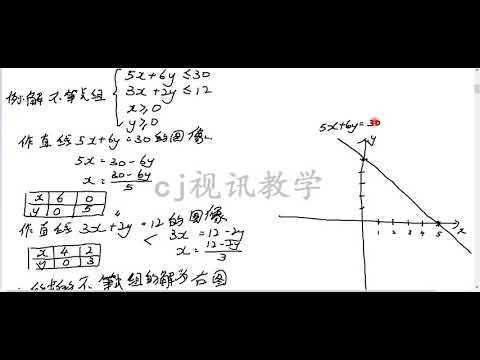 例:解不等式组 { 5x+6y≤30
3x+2y≤12
x≥0
y≥0
作直线5x+6y=30的图像
5x=30-6y
x=\frac{30-6y}{5}
x 6 0
y 0 5
作直线 3x+2y=12 的图像
3x=12-2y
x=\frac{12-2y}{3}
x 4 2
y 0 3
不等式组的解为右图
cj视讯教学
5x+6y=30
y
1 2 3 4 5 x